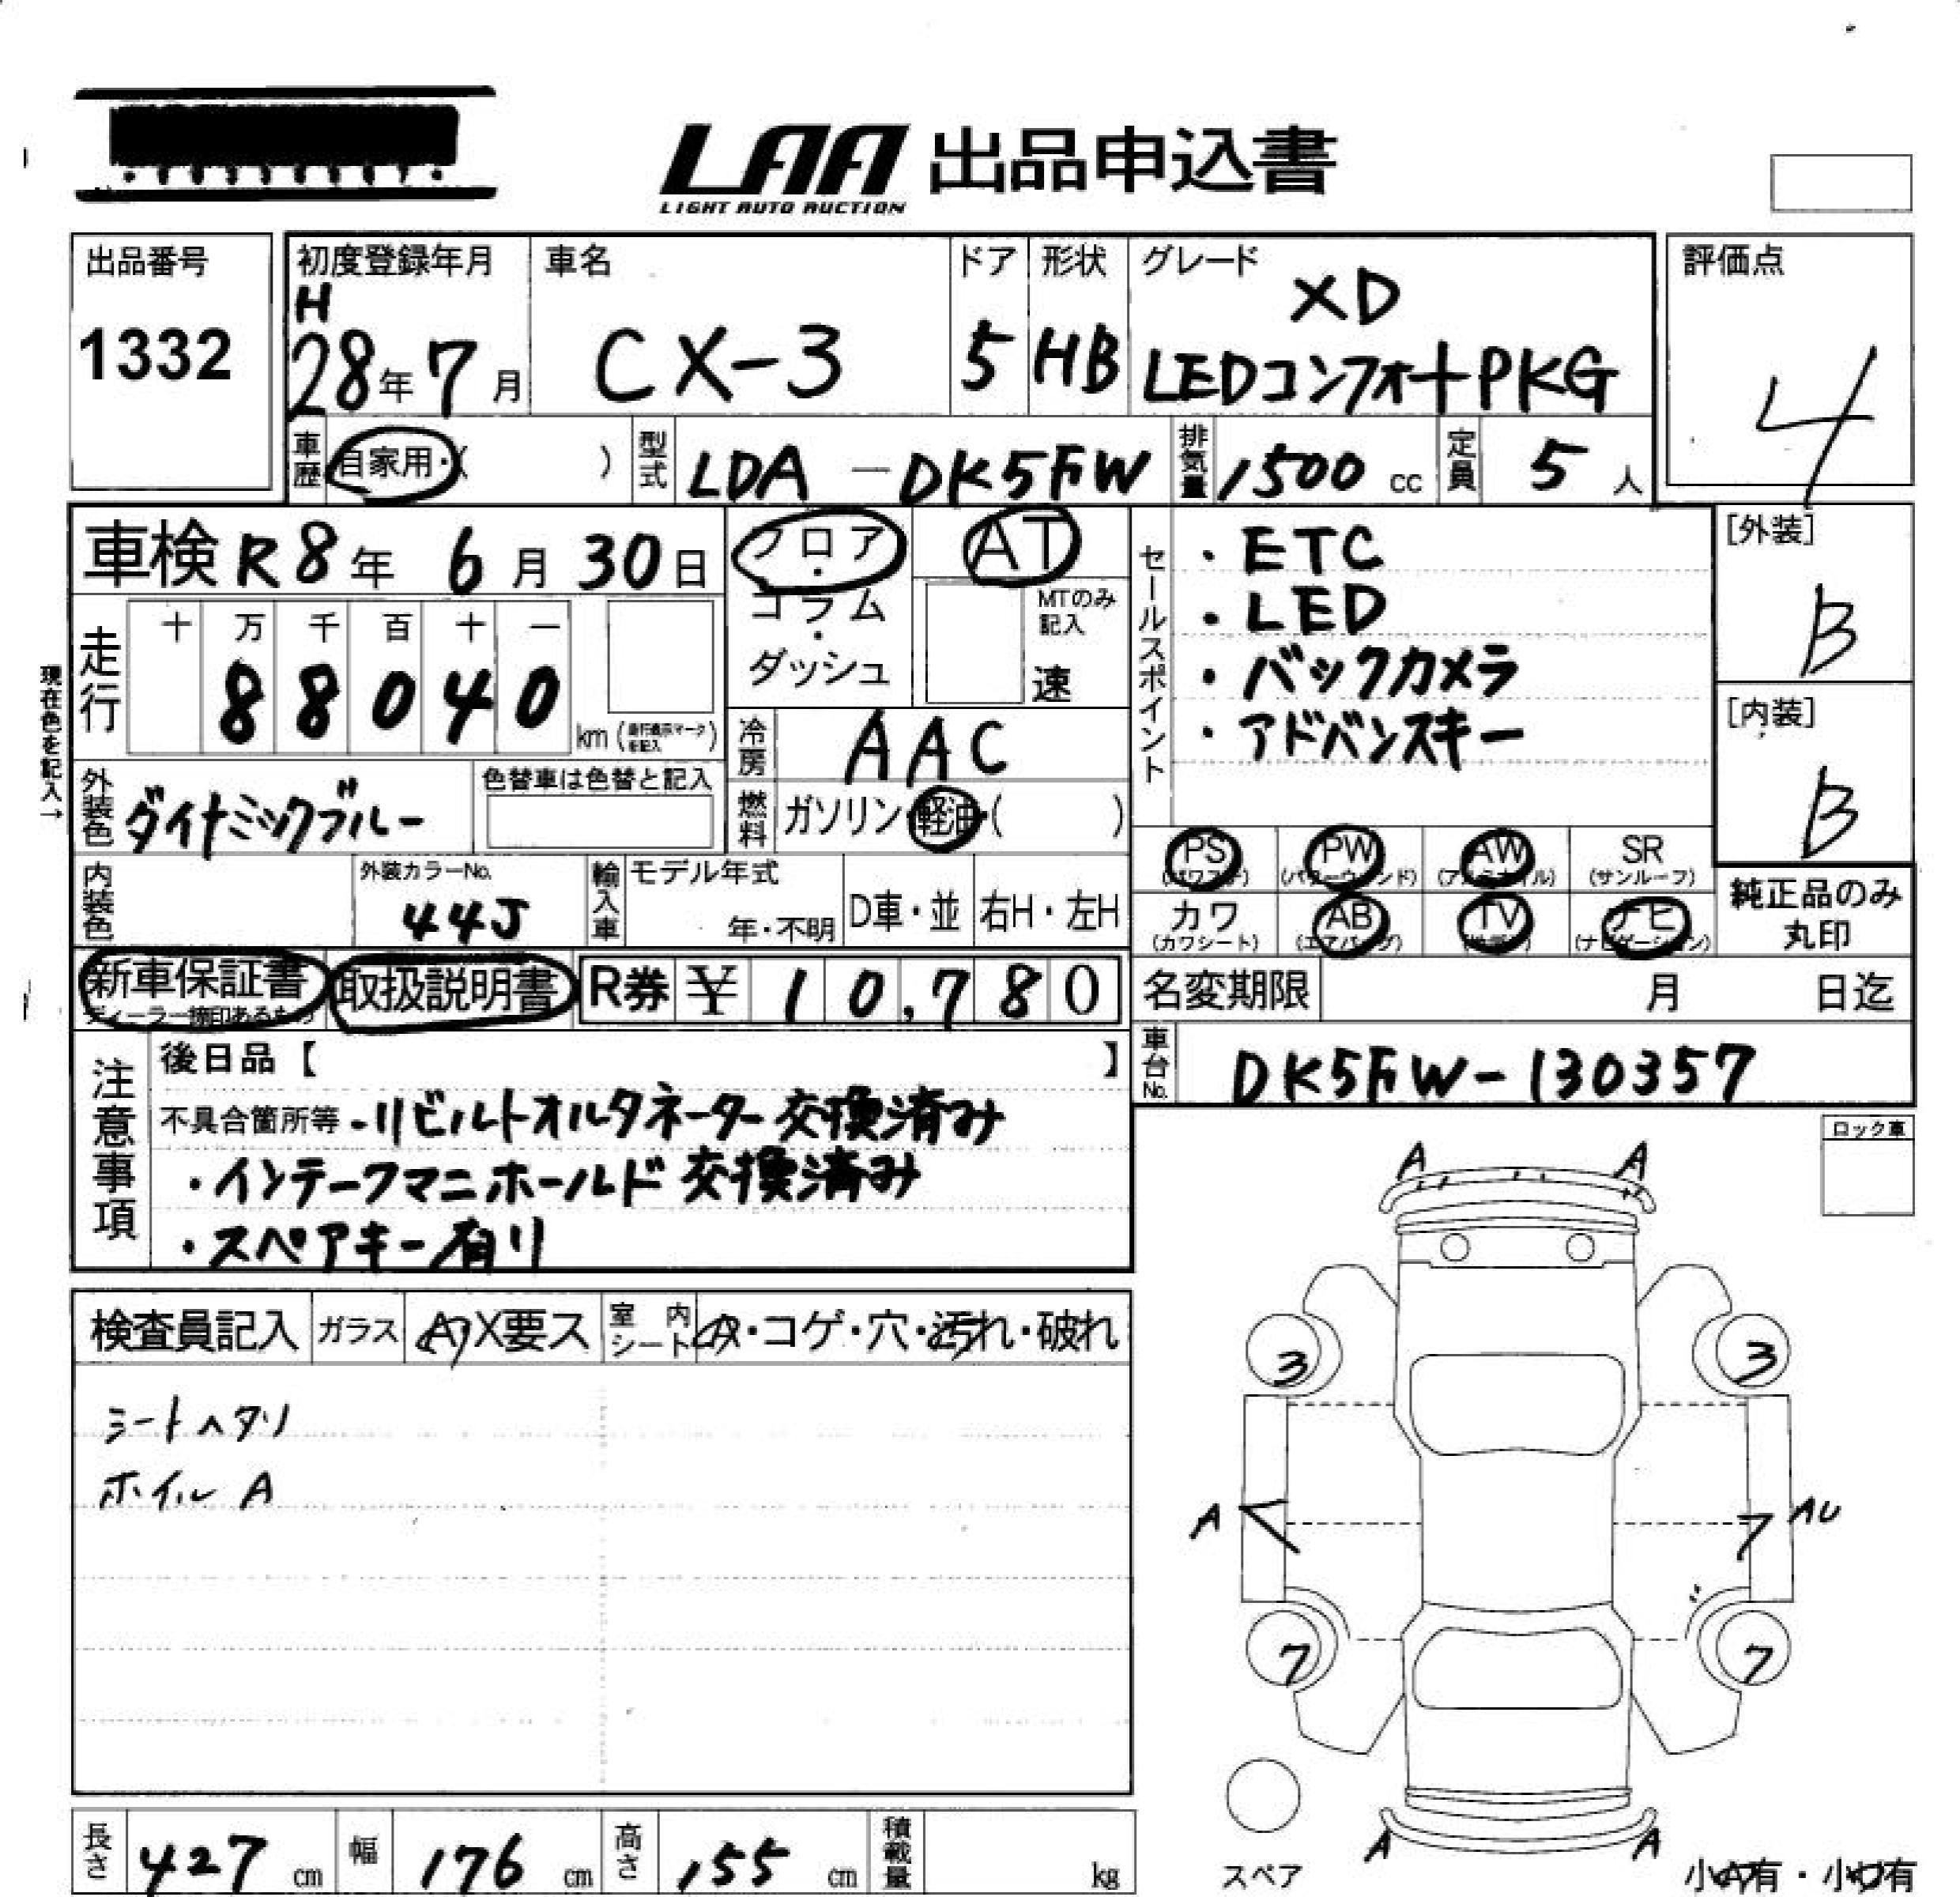 LAA 出品申込書
LIGHT AUTO AUCTION
出品番号
1332
初度登録年月
H
28年 7月
車名
CX-3
ドア
5
形状
HB
グレード
XD
LEDコンフォートPKG
評価点
4
車歴
自家用・( )
型式
LDA-DK5FW
排気量
1500 cc
定員
5 人
車検 R8年 6月 30日
フロア
・
コラム
・
ダッシュ
AT
MTのみ
記入
速
走行
十 万 千 百 十 一
8 8 0 4 0
km
現在色を記入→
セールスポイント
・ETC
・LED
・バックカメラ
・アドバンスキー
[外装]
B
[内装]
B
冷房
AAC
燃料
ガソリン・軽油・( )
外装色
ダイナミックブルー
色替車は色替と記入
内装色
外装カラーNo.
44J
輸入車
モデル年式
年・不明
D車・並
右H・左H
PS
(パワステ)
PW
(パワーウィンド)
AW
(アルミホイル)
SR
(サンルーフ)
カワ
(カワシート)
AB
(エアバッグ)
TV
ナビ
(ナビゲーション)
純正品のみ
丸印
新車保証書
ディーラー捺印あるもの
取扱説明書
R券 ¥ 10,780
名変期限 月 日迄
車台No.
DK5FW-130357
注意事項
後日品【 】
不具合箇所等 ・リビルトオルタネーター交換済み
・インテークマニホールド交換済み
・スペアキー有り
ロック車
検査員記入
ガラス
A X要ス
室内
シート
ス・コゲ・穴・汚れ・破れ
シートヘタリ
ホイル A
A A
3 3
A AU
7 7
A A
スペア
小A有・小U有
長さ 427 cm
幅 176 cm
高さ 155 cm
積載量 kg